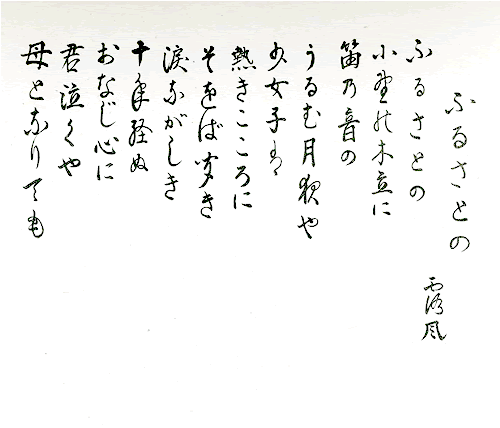 ふるさとの
露風
ふるさとの
小野の木立に
笛乃音の
うるむ月夜や
少女子は
熱きこころに
そをば聞き
涙ながしき
十年経ぬ
おなじ心に
君泣くや
母となりても